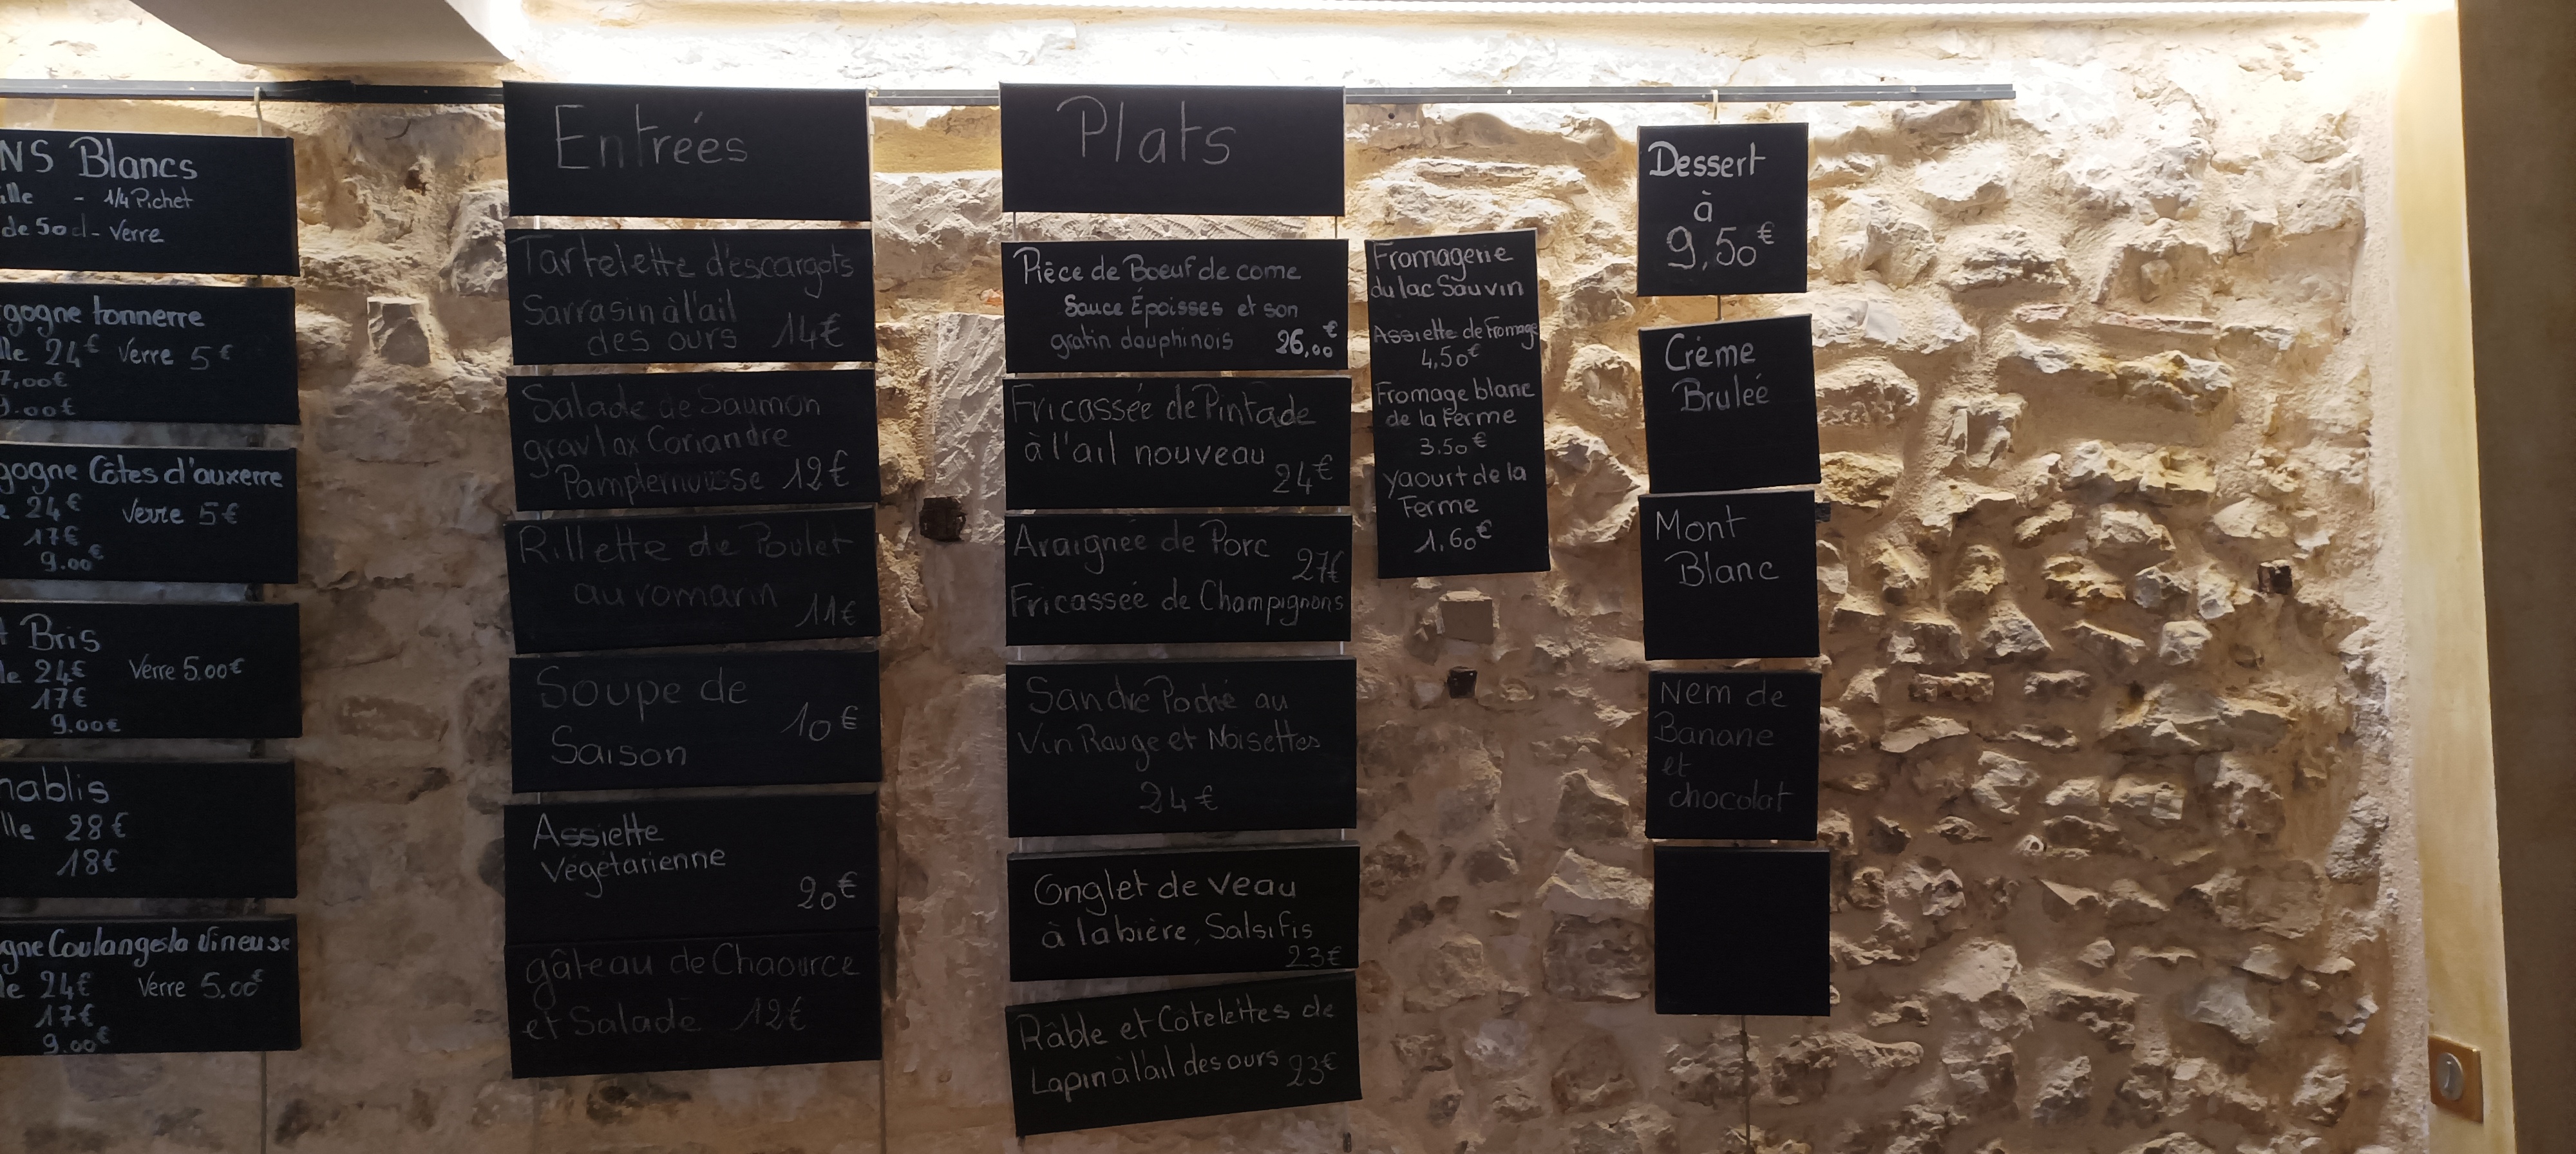 Blancs
- 1/4 Pichet
de 50cl - Verre
tonnerre
24€ Verre 5€
9.00€
Côtes d'auxerre
24€ Verre 5€
17€
9.00€
Bris
24€ Verre 5.00€
17€
9.00€
28€
18€
Coulanges la Vineuse
24€ Verre 5.00€
17€
9.00€
Entrées
Tartelette d'escargots
Sarrasin à l'ail
des ours 14€
Salade de Saumon
gravlax Coriandre
Pamplemousse 12€
Rillette de Poulet
au romarin 11€
Soupe de
Saison 10€
Assiette
Végétarienne
20€
gâteau de Chaource
et Salade 12€
Plats
Pièce de Bœuf de come
Sauce Époisses et son
gratin dauphinois 26,00€
Fricassée de Pintade
à l'ail nouveau
24€
Araignée de Porc 27€
Fricassée de Champignons
Sandre Poché au
Vin Rouge et Noisettes
24€
Onglet de veau
à la bière, Salsifis
23€
Râble et Côtelettes de
Lapin à l'ail des ours 23€
Fromagerie
du lac Sauvin
Assiette de Fromage
4,50€
Fromage blanc
de la Ferme
3.50€
yaourt de la
Ferme
1.60€
Dessert
à
9,50€
Crème
Bruleé
Mont
Blanc
Nem de
Banane
et
chocolat